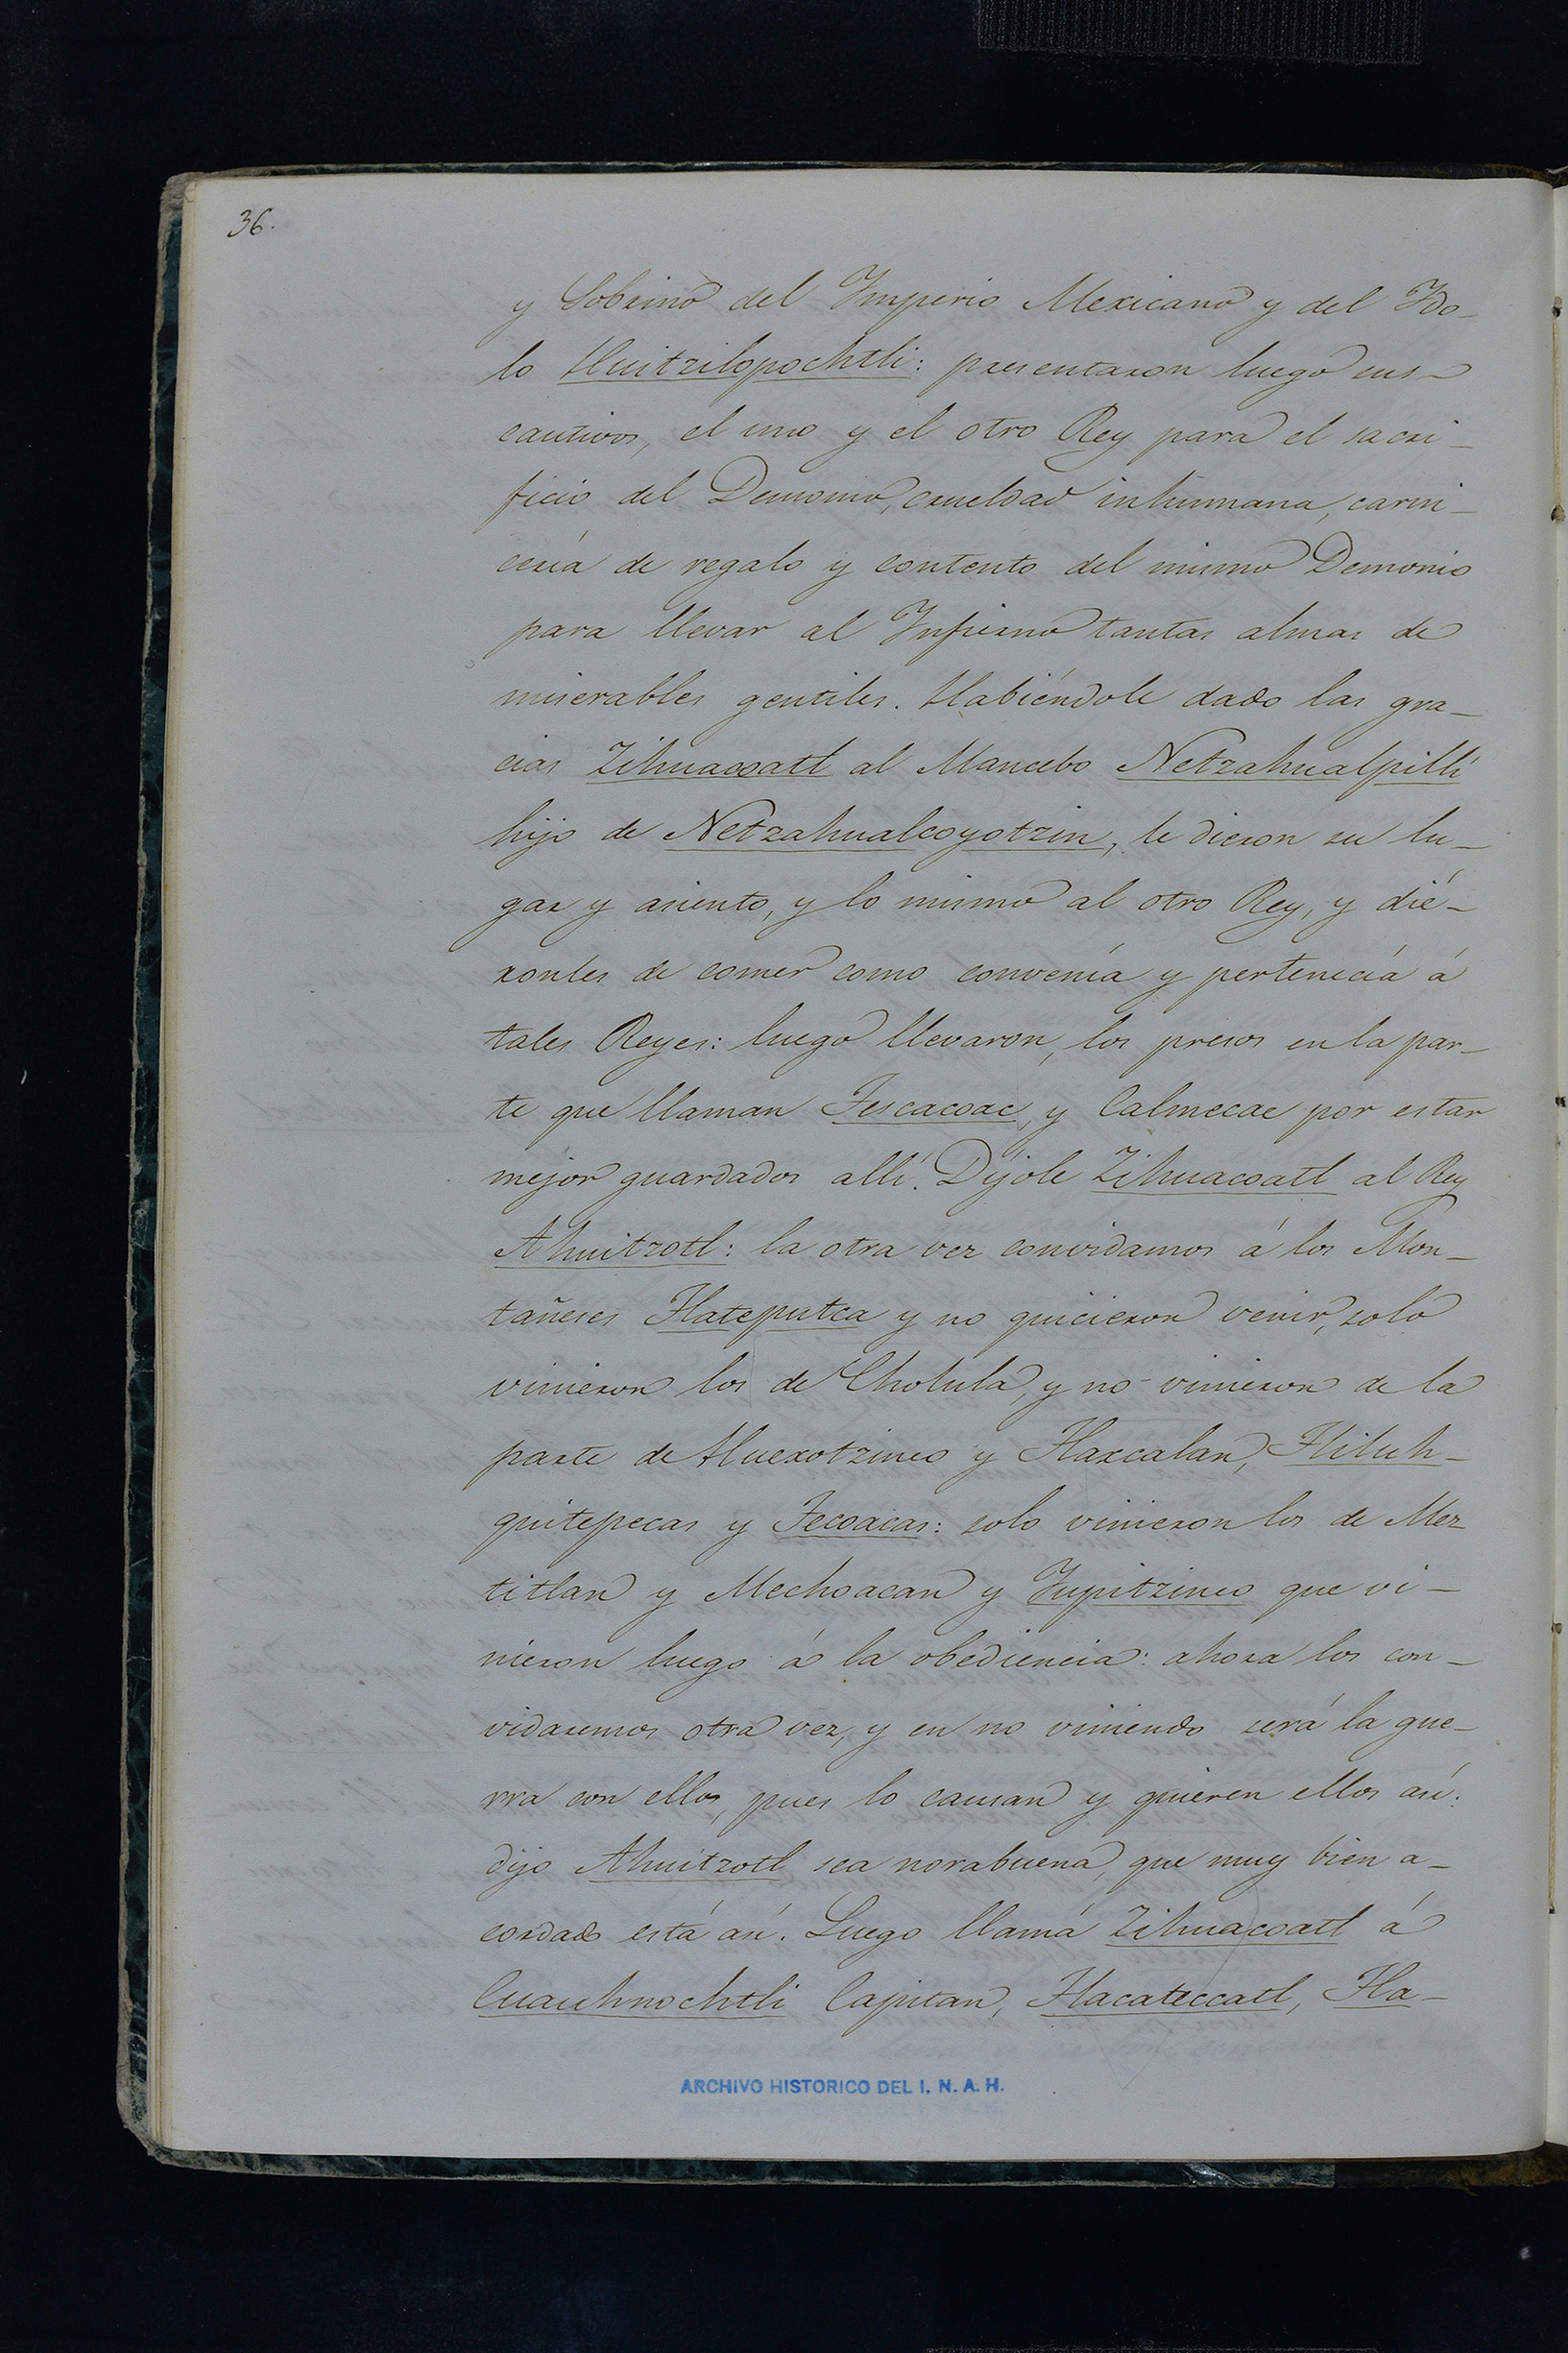 36.
y Sobrino del Imperio Mexicano y del Ydo-
lo Huitzilopochtli: presentaron luego sus
cautivos, el uno y el otro Rey para el sacri-
ficio del Demonio, crueldad inhumana, carni-
cería de regalo y contento del mismo Demonio
para llevar al Infierno tantas almas de
miserables gentiles. Habiéndole dado las gra-
cias Zihuacoatl al Mancebo Netzahualpilli
hijo de Netzahualcoyotzin, le dieron su lu-
gar y asiento, y lo mismo al otro Rey, y dié-
ronles de comer como convenía y pertenecía á
tales Reyes: luego llevaron, los presos en la par-
te que llaman Tescacoac, y Calmecac por estar
mejor guardados allí. Díjole Zihuacoatl al Rey
Ahuitzotl: la otra vez convidamos á los Mon-
tañeses Tlateputca y no quicieron venir, solo
vinieron los de Cholula, y no vinieron de la
parte de Huexotzinco y Tlaxcalan, Tliluh-
quitepecas y Tecoacas: solo vinieron los de Mez
titlan y Mechoacan y Yupitzinco que vi-
nieron luego á la obediencia: ahora los con-
vidaremos otra vez, y en no viniendo será la gue-
rra con ellos, pues lo causan y quieren ellos así:
dijo Ahuitzotl sea norabuena, que muy bien a-
cordado está así. Luego llamá Zihuacoatl á
Cuauhnochtli Capitan, Tlacateccatl, Tla-
ARCHIVO HISTORICO DEL I. N. A. H.